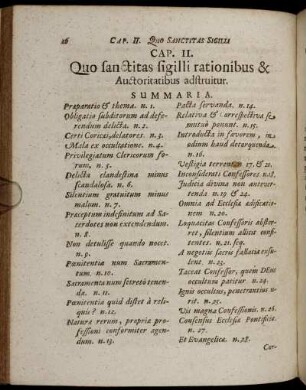 26 CAP. II. QUO SANCTITAS SIGILLI
CAP. II.
Quo sanctitas sigilli rationibus &
Auctoritatibus adstruitur.
SUMMARIA.
Præparatio & thema. n. 1.
Obligatio subditorum ad defe-
rendum delicta. n. 2.
Certi Coricæi, delatores. n. 3.
Mala ex occultatione. n. 4.
Privilegiatum Clericorum fo-
rum. n. 5.
Delicta clandestina minus
scandalosa. n. 6.
Silentium gratuitum minus
malum. n. 7.
Præceptum indefinitum ad Sa-
cerdotes non extendendum.
n. 8.
Non detulisse quando nocet.
n. 9.
Pœnitentia num Sacramen-
tum. n. 10.
Sacramenta num secretò tenen-
da. n. 11.
Pœnitentia quid distet à reli-
quis? n. 12.
Natura rerum, propria pro-
fessioni conformiter agen-
dum. n. 13.
Pacta servanda. n. 14.
Relativa & correspectiva se
mutuò ponunt. n. 15.
Introducta in favorem, in
odium haud detorquenda.
n. 16.
Vestigia terrent. n. 17. & 21.
Inconsiderati Confessores n. 18.
Judicia divina non antever-
tenda. n. 19 & 22.
Omnia ad Ecclesiæ ædificatio-
nem n. 20.
Loquacitas Confessoris abster-
ret, silentium allicit confi-
tentes. n. 21. seq.
A negotiis sacris fallatia exsu-
lent. n. 23.
Taceat Confessor, quem DEus
occultum patitur. n. 24.
Ignis occultus, penetrantius u-
rit. n. 25.
Vis magna Confessionis. n. 26.
Consensus Ecclesiæ Pontificiæ.
n. 27.
Et Evangelicæ. n. 28.
Car-